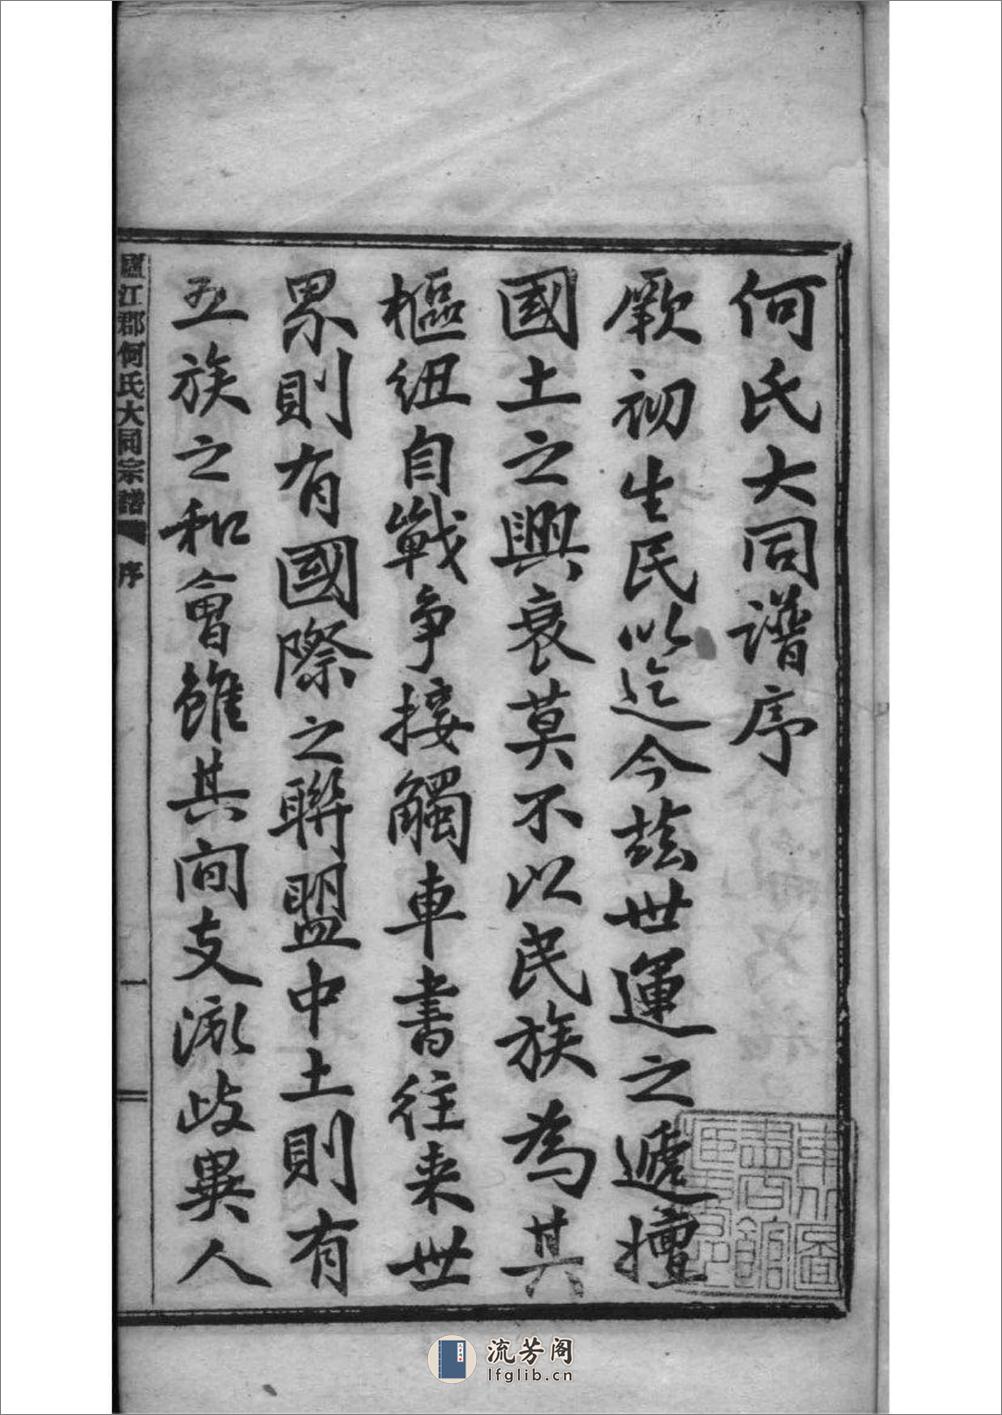 何氏大同譜序
厥初生民以迄今茲世運之遞擅
國土之興衰莫不以民族為其
樞紐自戰爭接觸車書往來世
界則有國際之聯盟中土則有
五族之和會雖其間支派歧異人
廬江郡何氏大同宗譜 序 一
流芳阁
lfglib.cn